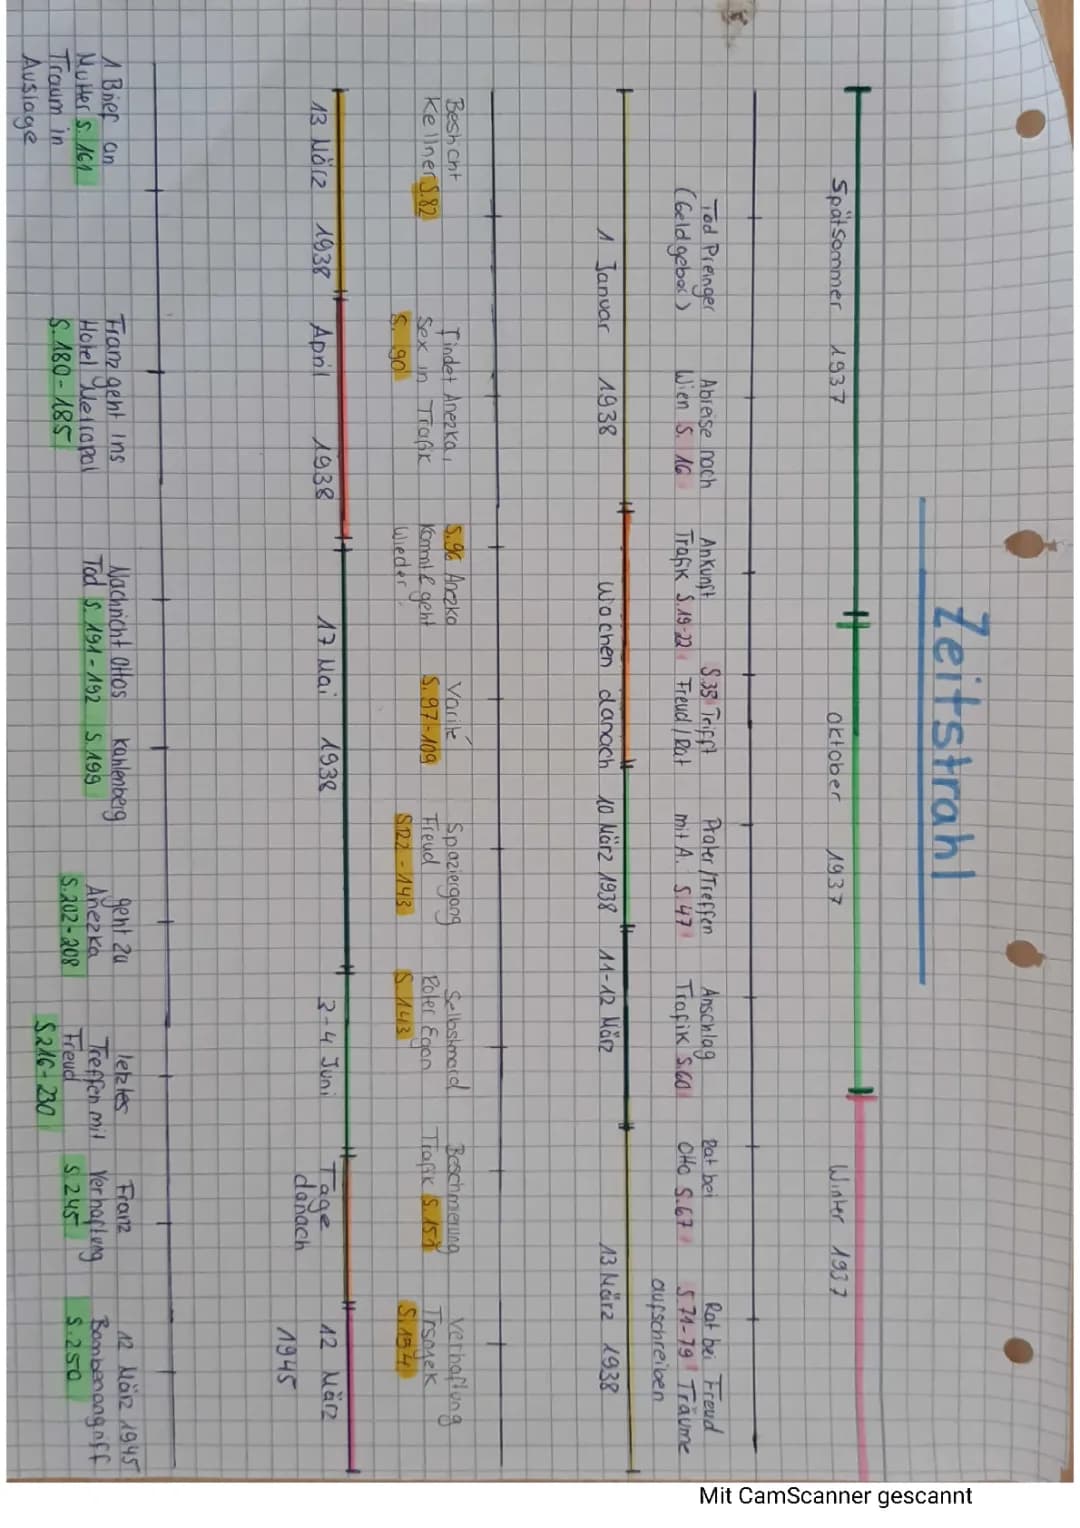 Zeitstrahl
Spätsommer 1937 Oktober 1937 Winter 1937
Tod Preinger Abreise nach Ankunft S.35 Trifft Prater/Treffen Anschlag Rat bei Rat bei Freud
(Geldgeber) Wien S. 16 Trafik S.19-22 Freud/Rat mit A. S.47 Trafik S.60 Otto S.67 S 71-79 Träume
aufschreiben
1 Januar 1938 Wochen danach 10 März 1938 11-12 März 13 März 1938
Besticht Findet Anezka, S.96 Anezka Varité Spaziergang Selbstmord Beschmierung Verhaftung
Kellner S.82 Sex in Trafik kommt & geht S. 97-109 Freud Roter Egon Trafik Trsonek
S. 90 wieder S.122-143 S 143
13 März 1938 April 1938 17 Mai 1938 3-4 Juni Tage 12 März
danach 1945
1 Brief an Franz geht ins Nachricht Ottos Kahlenberg geht zu letztes Franz 12 März 1945
Mutter S. 161 Hotel Metropol Tod S. 191-192 S.199 Anezka Treffen mit Verhaftung Bombenangriff
Traum in S. 180-185 S.202-208 Freud S.245 S.250
Auslage S.216-230
Mit CamScanner gescannt